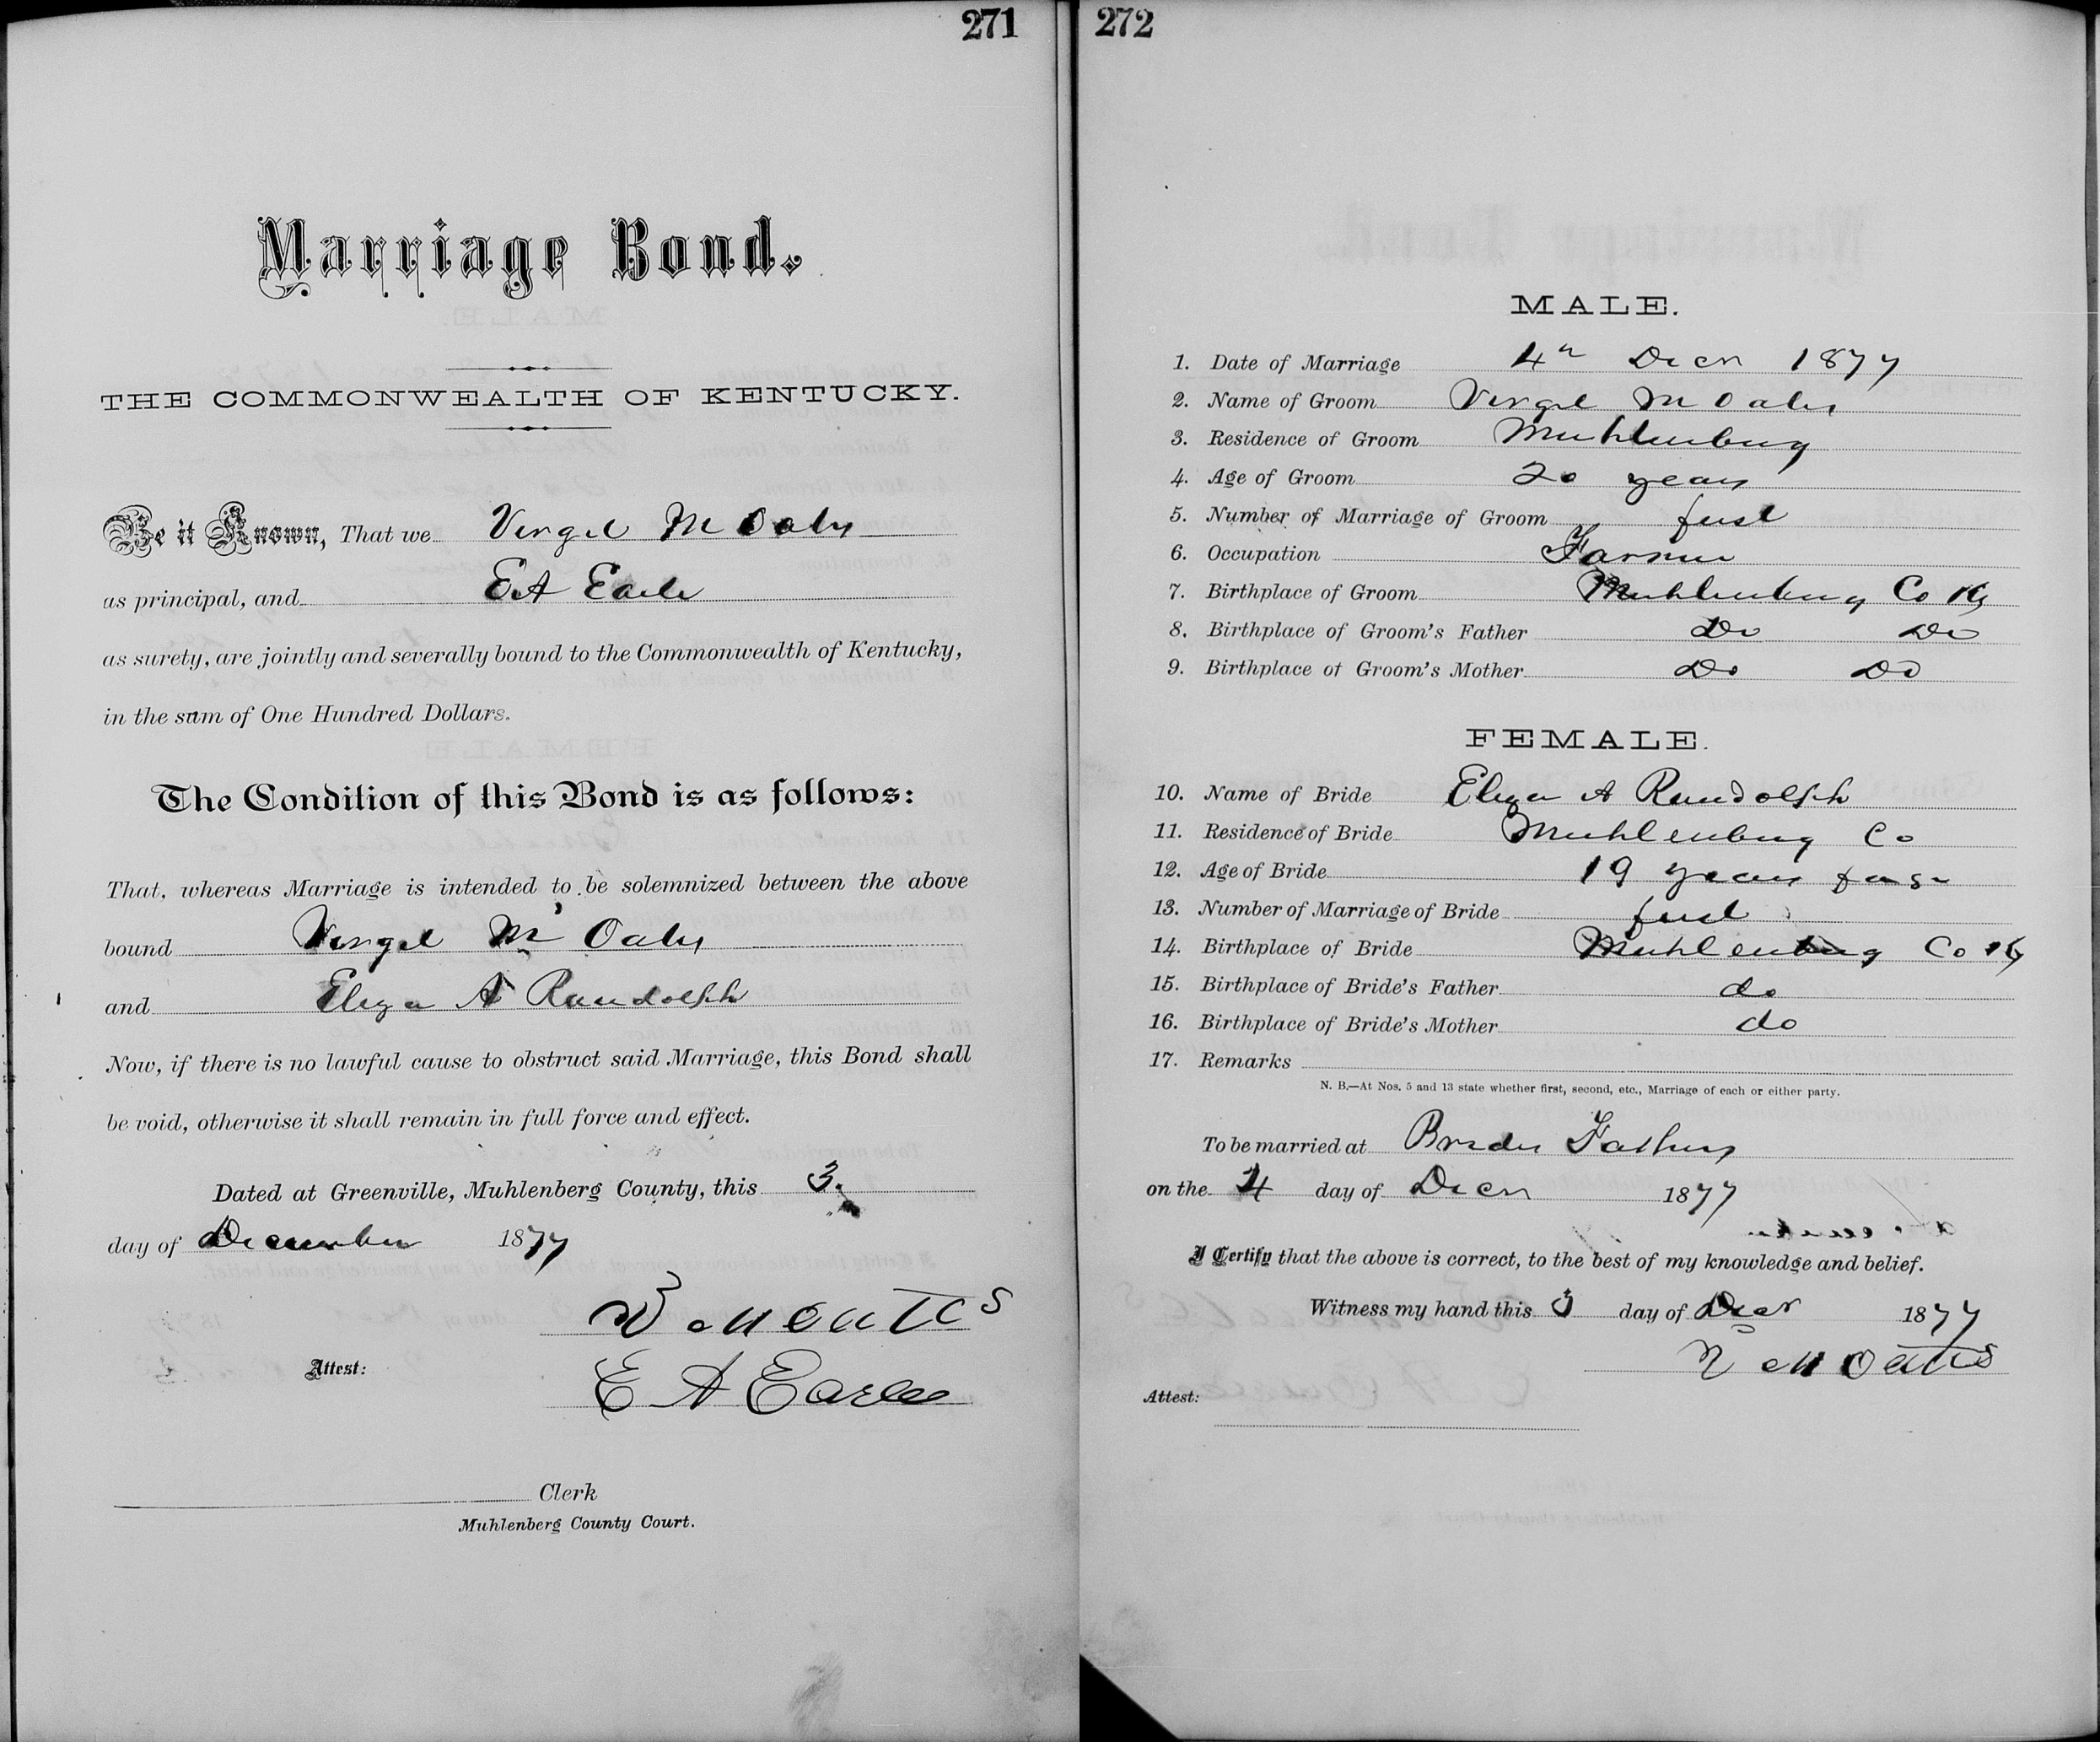 271
Marriage Bond.
THE COMMONWEALTH OF KENTUCKY.
Be it Known, That we Virgil M Oates
as principal, and EA Earle
as surety, are jointly and severally bound to the Commonwealth of Kentucky,
in the sum of One Hundred Dollars.
The Condition of this Bond is as follows:
That, whereas Marriage is intended to be solemnized between the above
bound Virgil M Oates
and Eliza A Randolph
Now, if there is no lawful cause to obstruct said Marriage, this Bond shall
be void, otherwise it shall remain in full force and effect.
Dated at Greenville, Muhlenberg County, this 3.
day of December 1877
Attest:
E A Earle
Clerk
Muhlenberg County Court.
272
MALE.
1. Date of Marriage 4th Decr 1877
2. Name of Groom Virgil M Oates
3. Residence of Groom Muhlenburg
4. Age of Groom 20 years
5. Number of Marriage of Groom first
6. Occupation Farmer
7. Birthplace of Groom Muhlenburg Co Ky
8. Birthplace of Groom's Father Do Do
9. Birthplace of Groom's Mother Do Do
FEMALE.
10. Name of Bride Eliza A Randolph
11. Residence of Bride Muhlenburg Co
12. Age of Bride 19 years
13. Number of Marriage of Bride first
14. Birthplace of Bride Muhlenburg Co Ky
15. Birthplace of Bride's Father do
16. Birthplace of Bride's Mother do
17. Remarks
N. B.—At Nos. 5 and 13 state whether first, second, etc., Marriage of each or either party.
To be married at Brides Fathers
on the 4 day of Decr 1877
I Certify that the above is correct, to the best of my knowledge and belief.
Witness my hand this 3 day of Decr 1877
Oates
Attest: